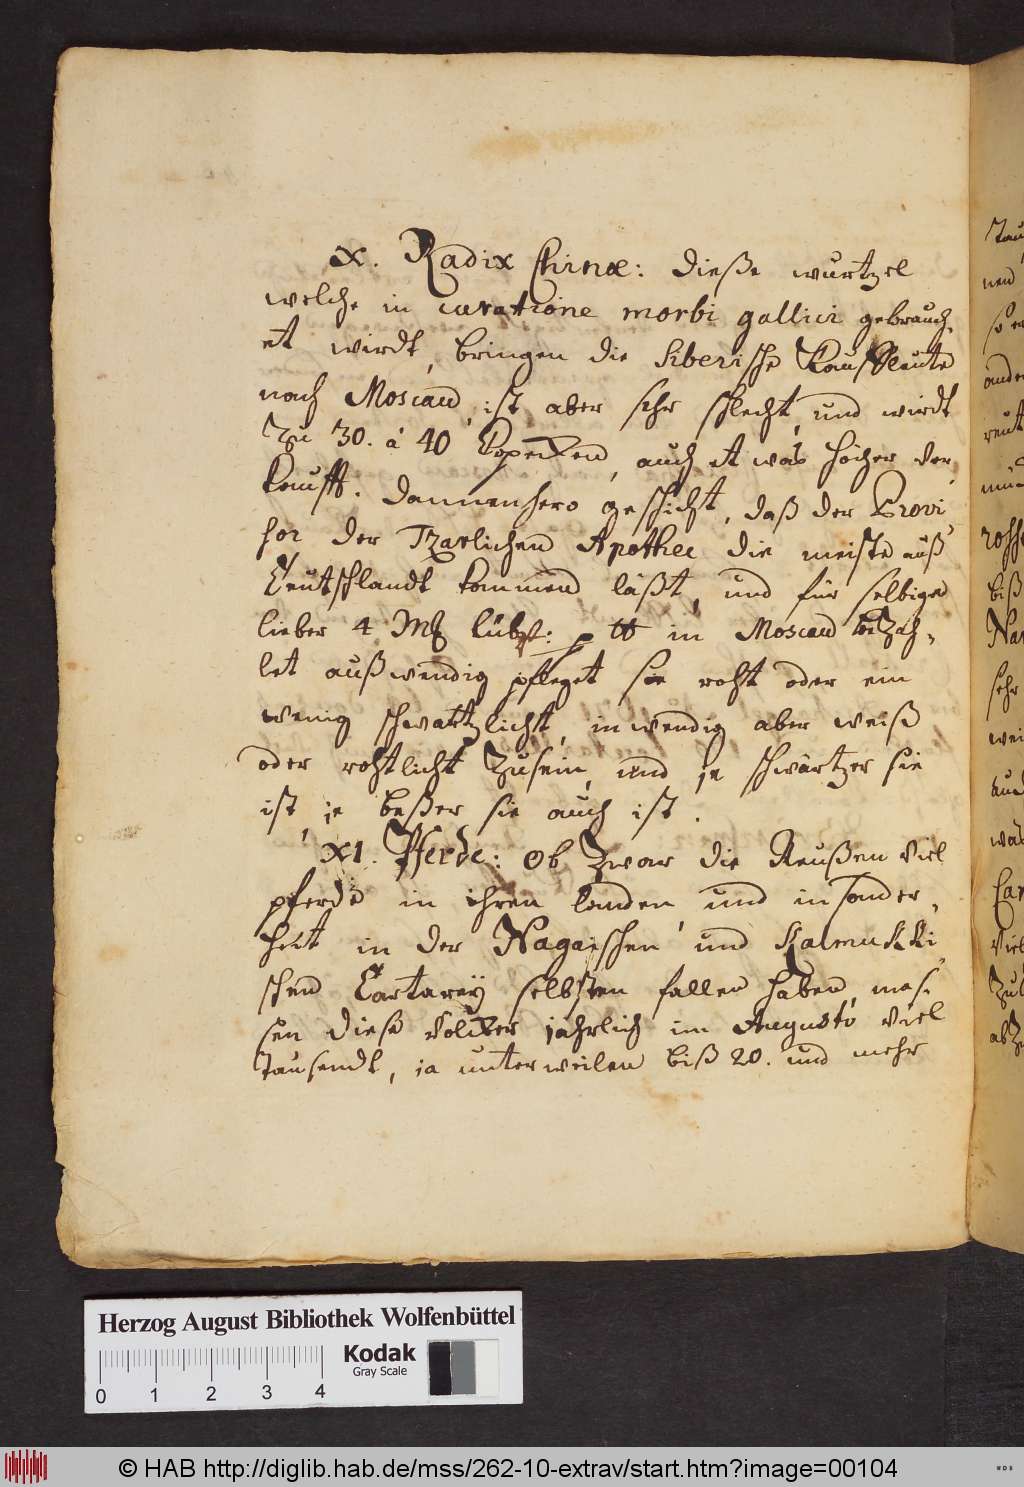 X. Radix Chinæ: dieße wurtzel
welche in curatione morbi gallici gebrauch,
et wirdt, bringen die Siberische Kauffleute
nach Moscau, ist aber sehr schlecht, und wirdt
zu 30. à 40 Copecken, auch et was höcher ver,
kaufft. dannenhero geschicht, daß der Provi,
sor der Tzarlichen Apothec die meiste auß
Teutschlandt kommen läßt, und für selbige
lieber 4 Mß lübst: p ℔ in Moscau bezah,
let außwendig pfleget sie roht oder ein
wenig schwartzlicht, inwendig aber weiß
oder rohtlicht zusein, und je schwärtzer sie
ist, je beßer sie auch ist.
XI. Pferde: Ob zwar die Reußen viel
pferde in ihren landen, und in sonder,
heit in der Nagaischen und Kalmukki,
schen Tartarey selbsten fallen haben,
sen diese Völcker jährlich im Augusto viel
Tausendt, ja unterweilen biß 20. und mehr
Tau
nen
so
ande
reut
roh
biß
Nar
sehr
wei
auch
was
Car
viel
zu
abz
Herzog August Bibliothek Wolfenbüttel
Kodak
Gray Scale
0 1 2 3 4
© HAB http://diglib.hab.de/mss/262-10-extrav/start.htm?image=00104